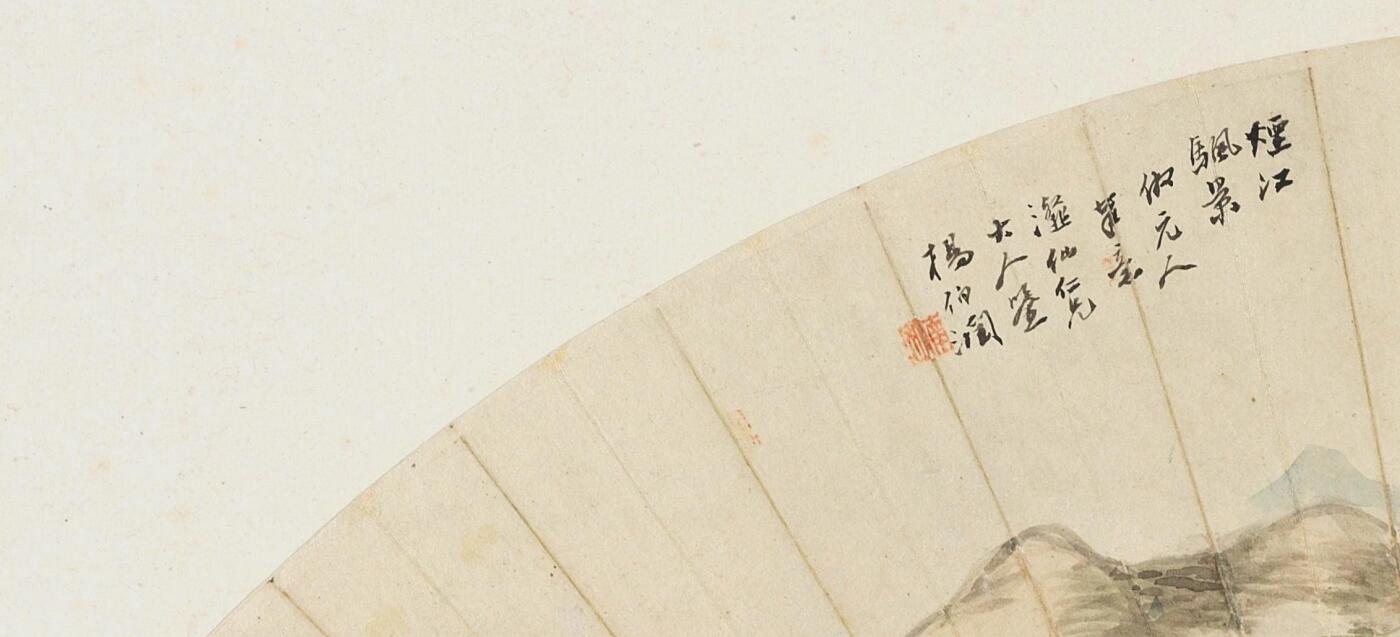 煙江
颿景
倣元人
筆意
仙仁兄
大人鑒
楊伯潤